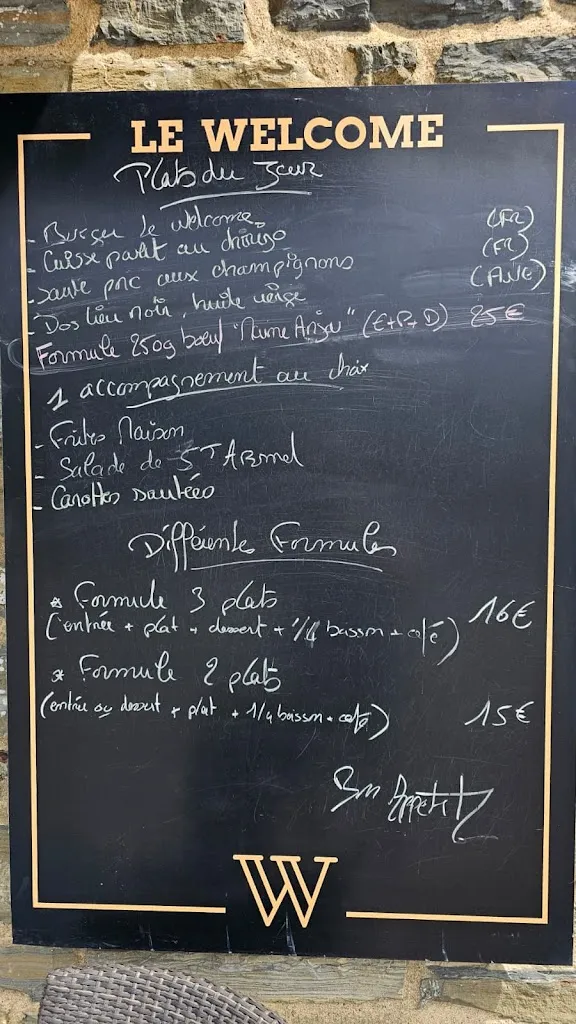 LE WELCOME
Plats du Jour
- Burger le welcome (FR)
- Cuisse poulet au chorizo (FR)
- Sauté porc aux champignons (ANE)
- Dos lieu noir, huile vierge
Formule 250g bœuf "Maine Anjou" (E+P+D) 25€
1 accompagnement au choix
- Frites Maison
- Salade de ST ARMEL
- Carottes sautées
Différentes Formules
* Formule 3 plats
(entrée + plat + dessert + 1/4 boisson + café) 16€
* Formule 2 plats
(entrée ou dessert + plat + 1/4 boisson + café) 15€
Bon Appétit
W